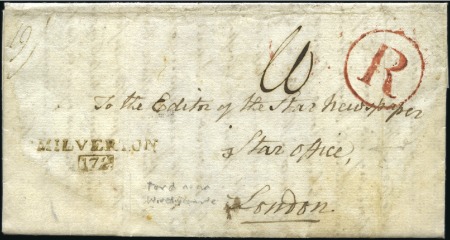 R
To the Editor of the Star Newspaper
Star Office,
MILVERTON
172
London.